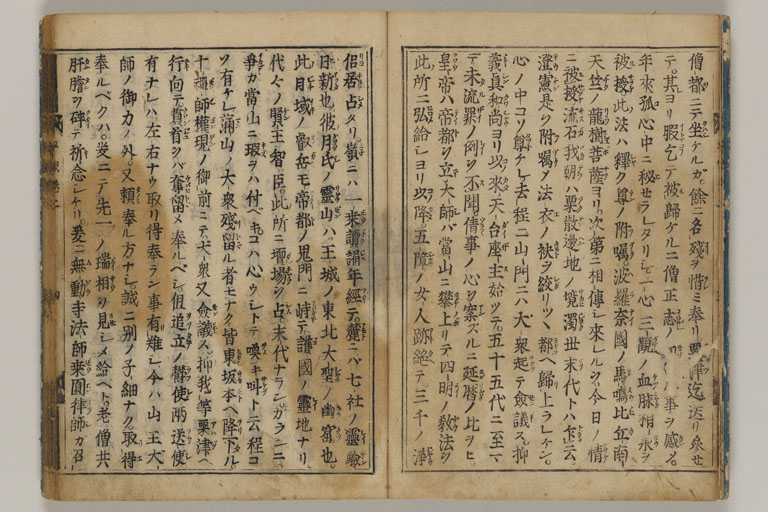 僧都ニテ坐ケルガ餘ニ各殘ヲ惜ミ奉リ粟津迄送リ參セ
テ其ヨリ暇乞テ被歸ケルニ僧正志ノ事ヲ感メ
年來孤心中ニ秘セラレタリシ一心三觀ノ血脉相承ヲ
被授此法ハ釋尊ノ附嘱波羅奈國ノ馬鳴比丘南
天竺ノ龍樹菩薩ヨリ次第ニ相傳シ來レルヲ今日ノ情
ニ被授流石我朝ハ粟散邊地ノ境濁世末代トハ乍云
澄憲是ヲ附嘱メ法衣ノ袂ヲ絞リツヽ都ヘ歸上ラレケン
心ノ中コソ尊ケレ去程ニ山門ニハ大衆起テ僉議ス抑
義眞和尚ヨリ以來天台座主始ツテ五十五代ニ至マ
テ未流罪ノ例ヲ不聞倩事ノ心ヲ案スルニ延暦ノ比ヲヒ
皇帝ハ帝都ヲ立大師ハ當山ニ攀上リテ四明ノ敎法ヲ
此所ニ弘給シヨリ以降五障ノ女人跡絶テ三千ノ淨
侶居占タリ嶺ニハ一乘讀誦年經テ麓ニハ七社ノ靈驗
日新也彼月氏ノ靈山ハ王城ノ東北大聖ノ幽窟也
此日域ノ叡岳モ帝都ノ鬼門ニ峙テ護國ノ靈地ナリ
代々ノ賢王智臣此所ニ壇場ヲ占末代ナランガランニ
爭カ當山ニ瑕ヲハ付ベキコハ心ウシトテ喚キ叫ト云程コ
ソ有ケレ滿山ノ大衆殘留ル者モナク皆東坂本ヘ降下ル
十禪師權現ノ御前ニテ大衆又僉議ス抑我等粟津ヘ
行向テ貫首ヲバ奪留メ奉ルベシ但追立ノ欝使兩送使
有ナレハ左右ナウ取リ得奉ラン事有難シ今ハ山王大
師ノ御力ノ外又頼奉ル方ナシ誠ニ別ノ子細ナク取得
奉ルベクハ爰ニテ先一ノ瑞相ヲ見シメ給ヘト老僧共
肝膽ヲ碎テ祈念シケリ爰ニ無動寺法師乘圓律師カ召